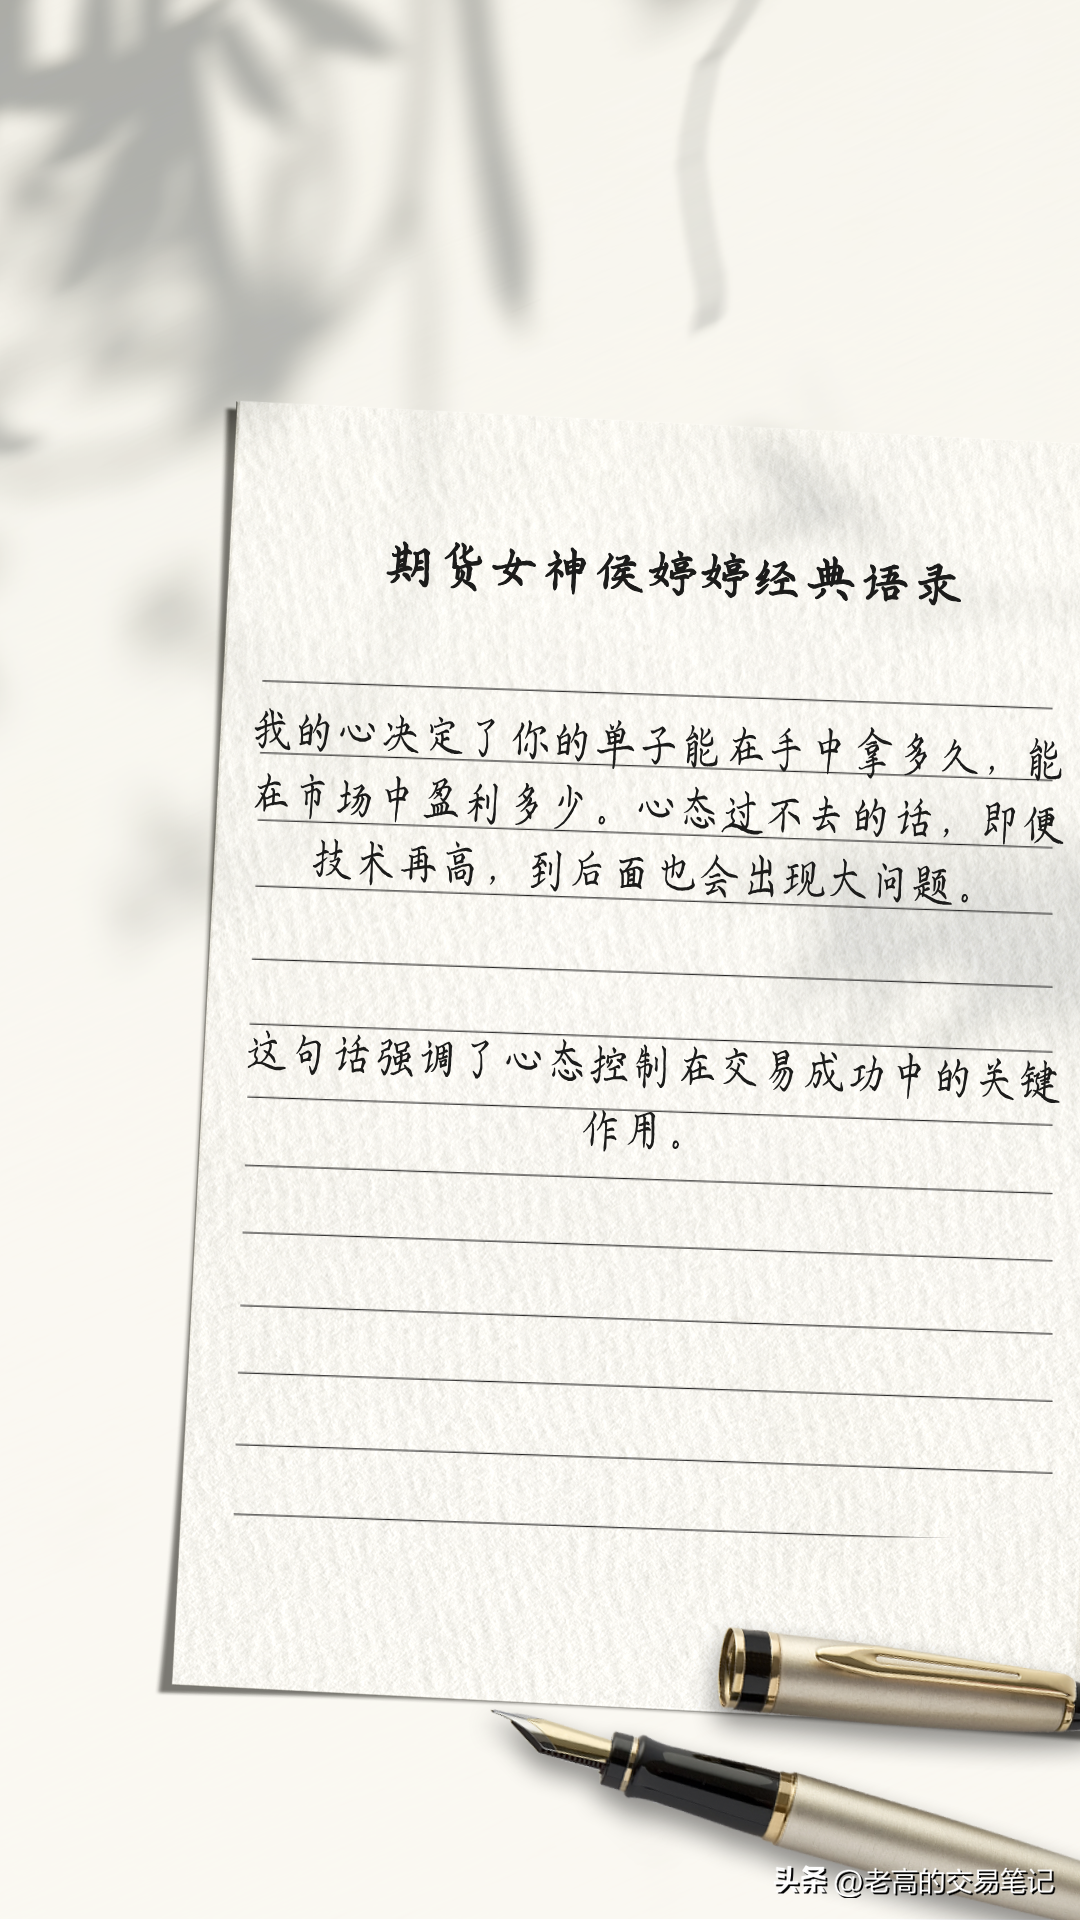 期货女神侯婷婷经典语录
我的心决定了你的单子能在手中拿多久，能
在市场中盈利多少。心态过不去的话，即便
技术再高，到后面也会出现大问题。
这句话强调了心态控制在交易成功中的关键
作用。
头条 @老高的交易笔记